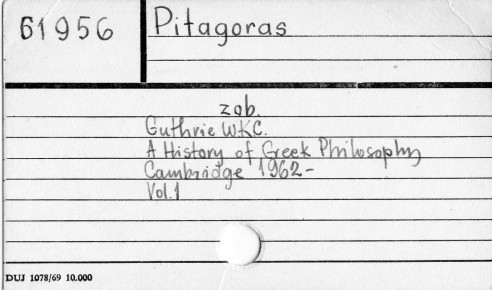 61956
Pitagoras
zob.
Guthrie W.K.C.
A History of Greek Philosophy
Cambridge 1962-
Vol.1
DUJ 1078/69 10.000